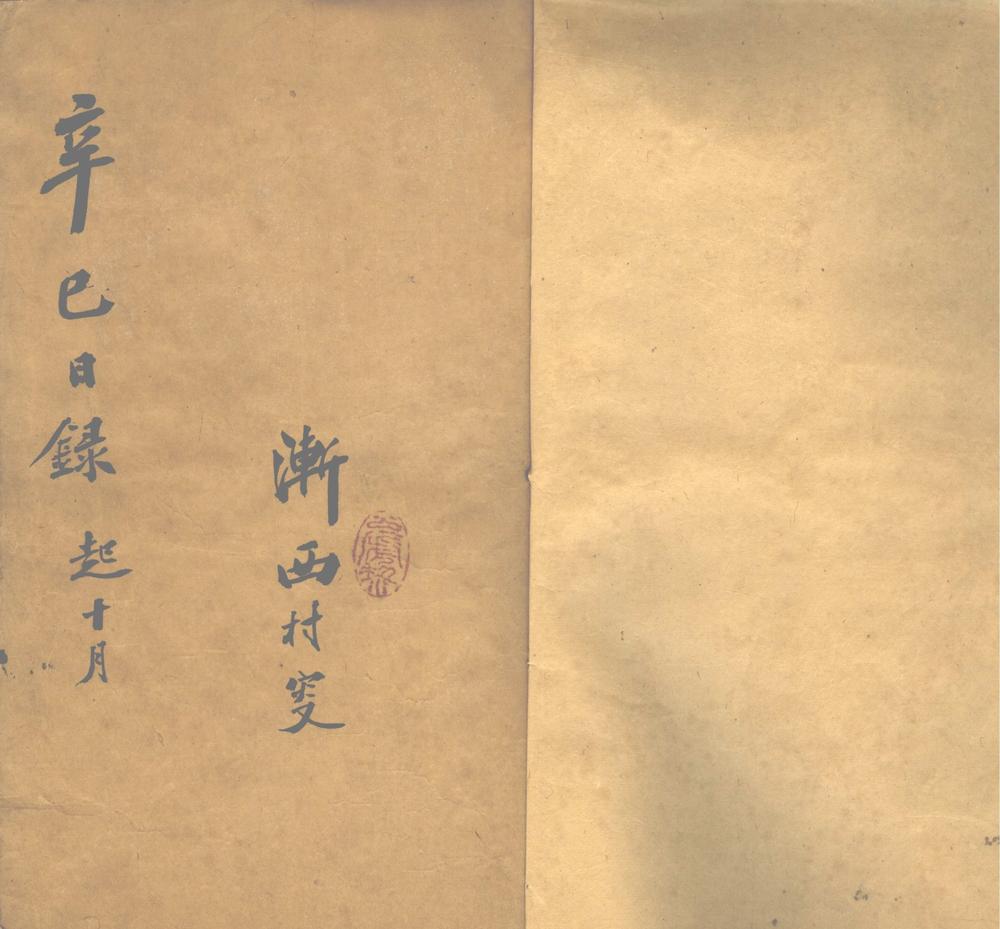 辛巳日錄 起十月
漸西村叜